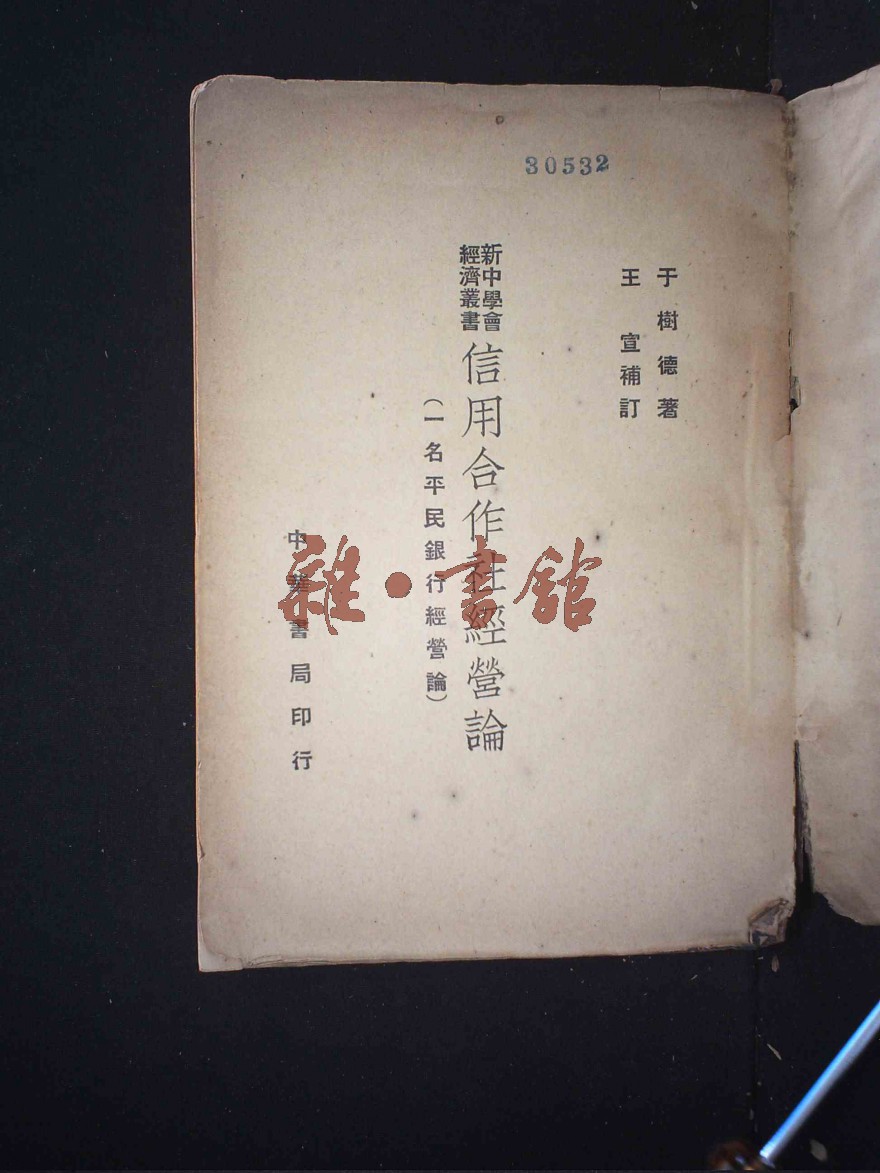 30532
于樹德著
王宣補訂
新中學會
經濟叢書
信用合作社經營論
（一名平民銀行經營論）
中華書局印行
雜·書館